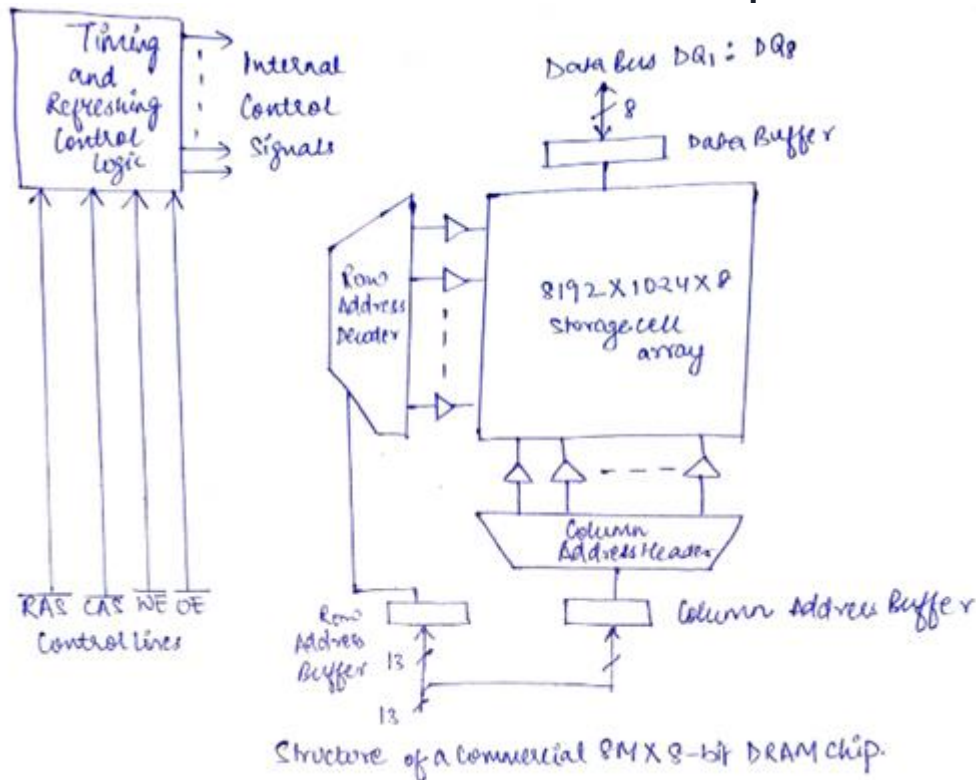 Timing
and
Refreshing
Control
Logic
Internal
Control
Signals
Data Bus DQ1 : DQ8
8
Data Buffer
Row
Address
Decoder
8192 X 1024 X 8
Storage cell
array
Column
Address Header
RAS CAS WE OE
Control Lines
Row
Address
Buffer
13
13
Column Address Buffer
Structure of a Commercial 8M X 8-bit DRAM chip.